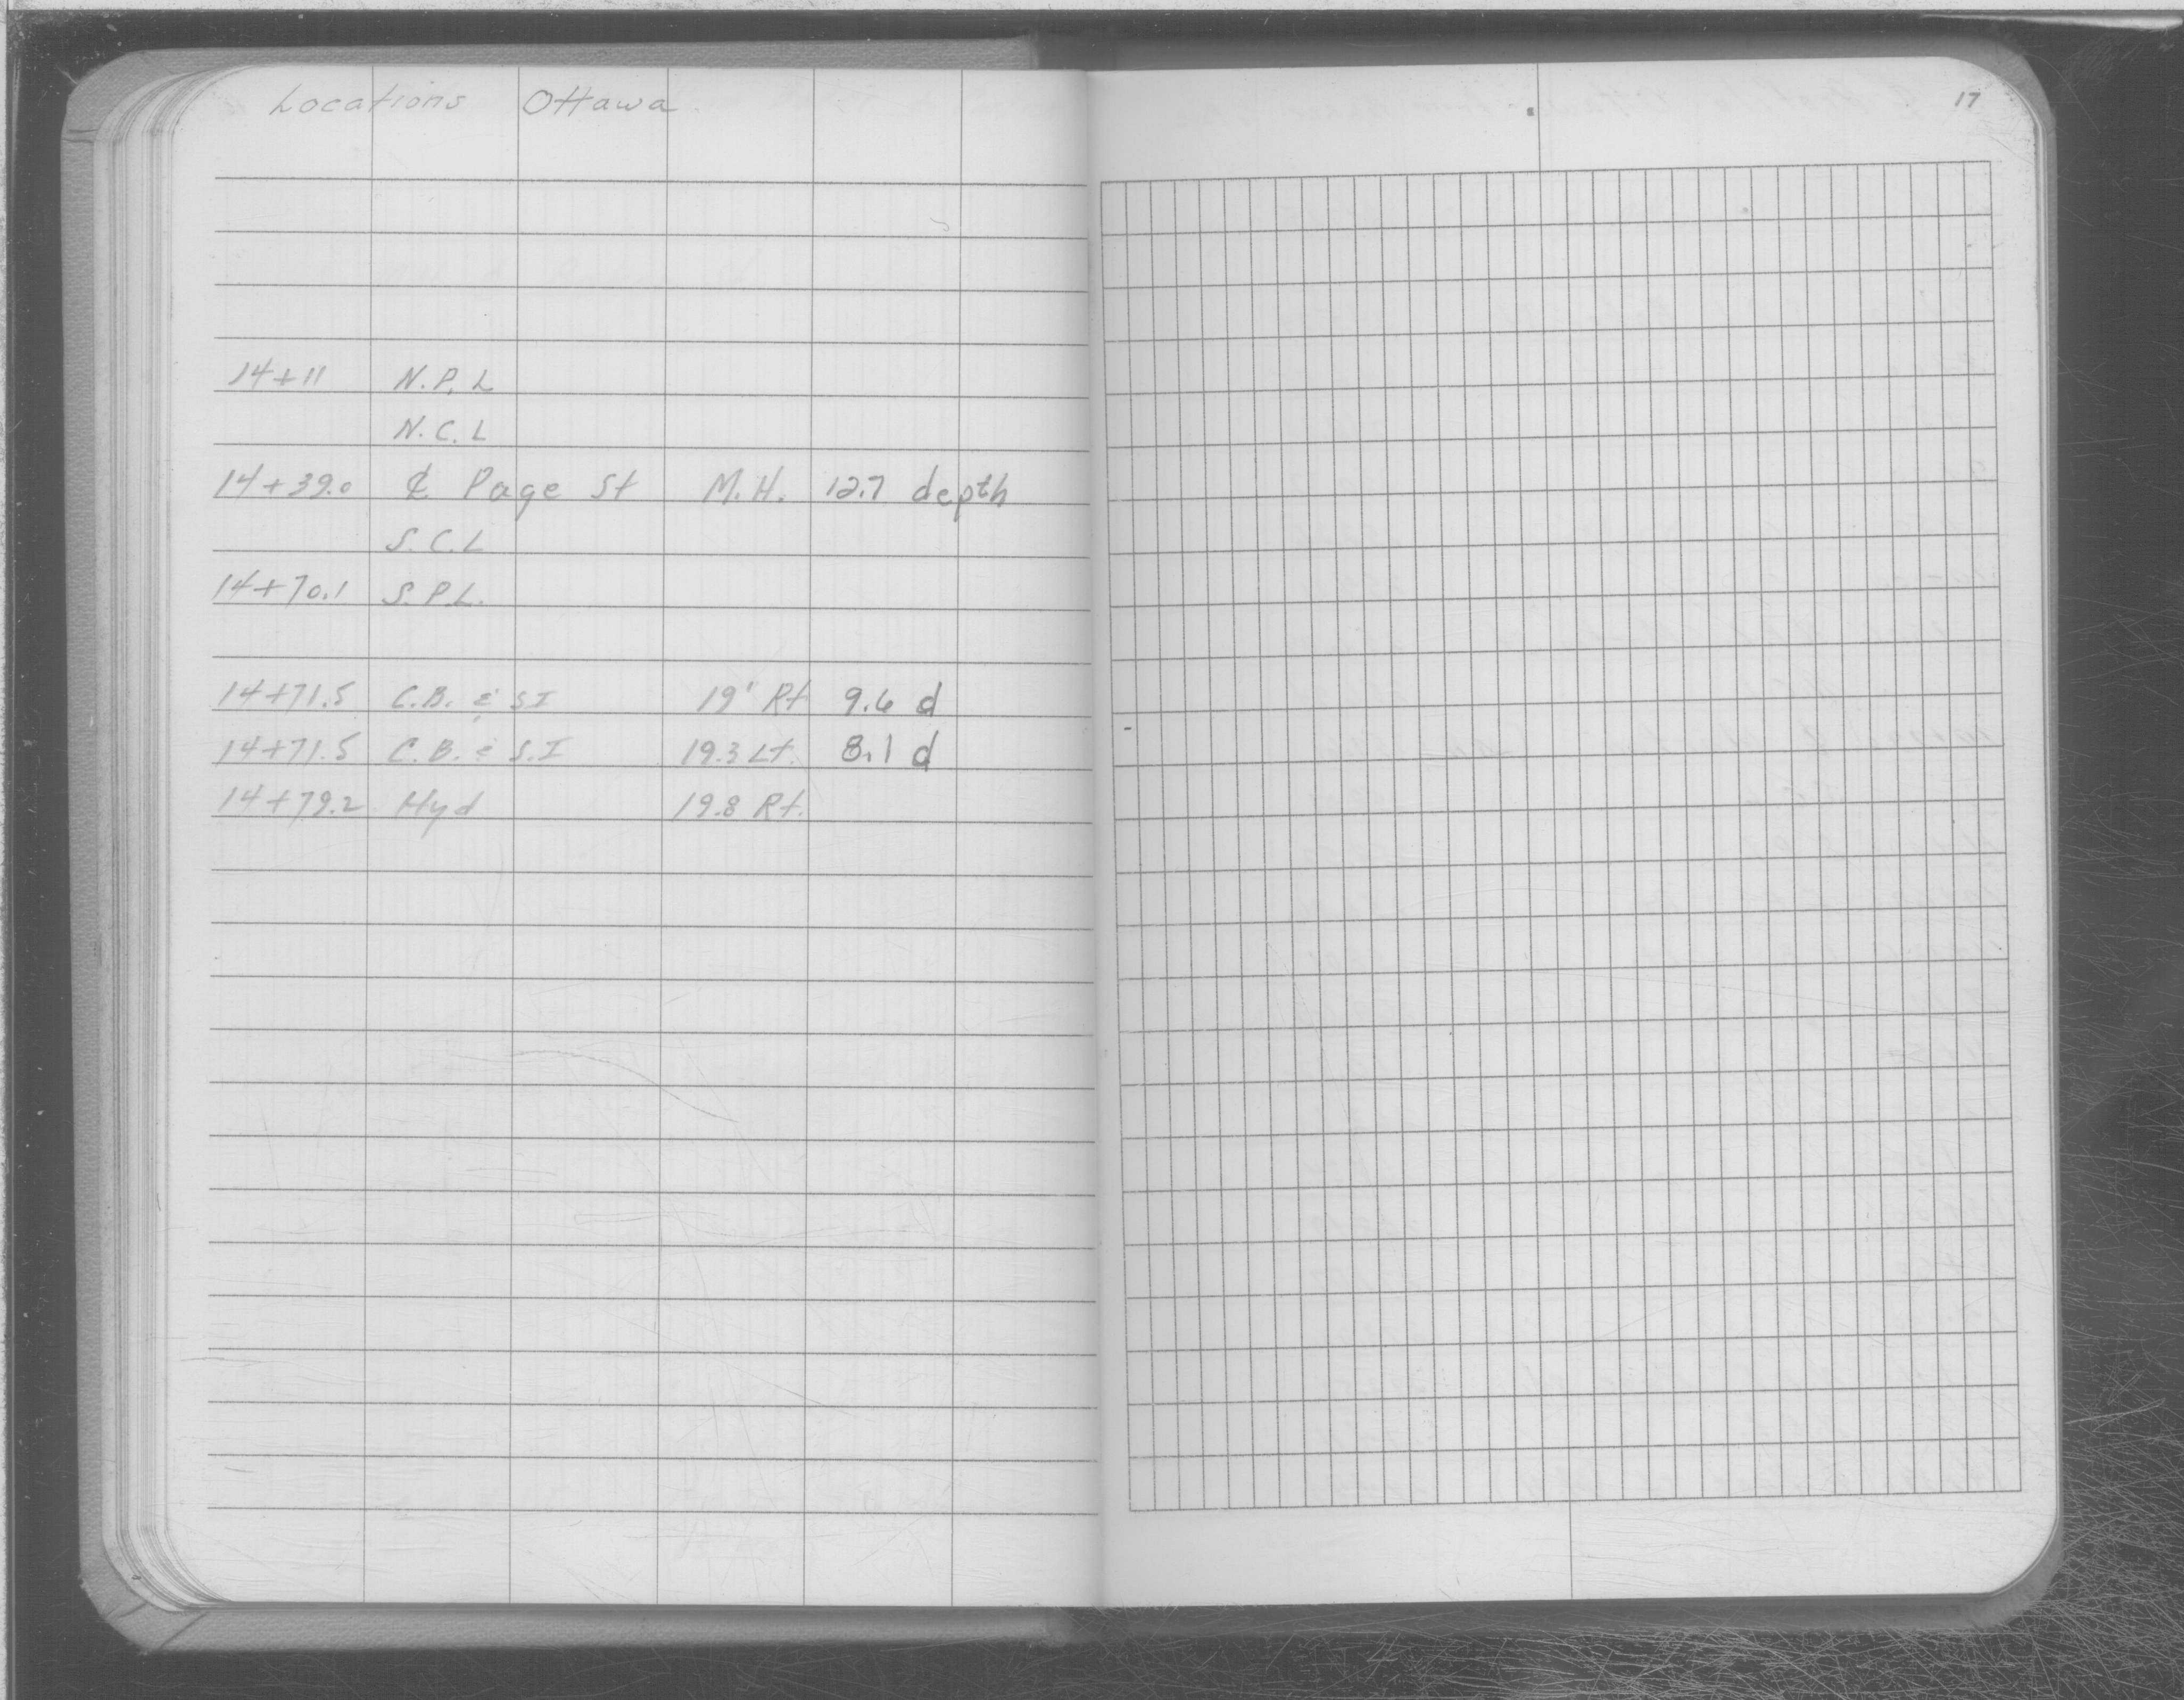 Locations Ottawa
17
14+11 N.P.L
N.C.L
14+39.0 ℄ Page St M.H. 12.7 depth
S.C.L
14+70.1 S.P.L.
14+71.5 C.B. & SI 19' Rt 9.6 d
14+71.5 C.B. & S.I 19.3 Lt. 8.1 d
14+79.2 Hyd 19.8 Rt.